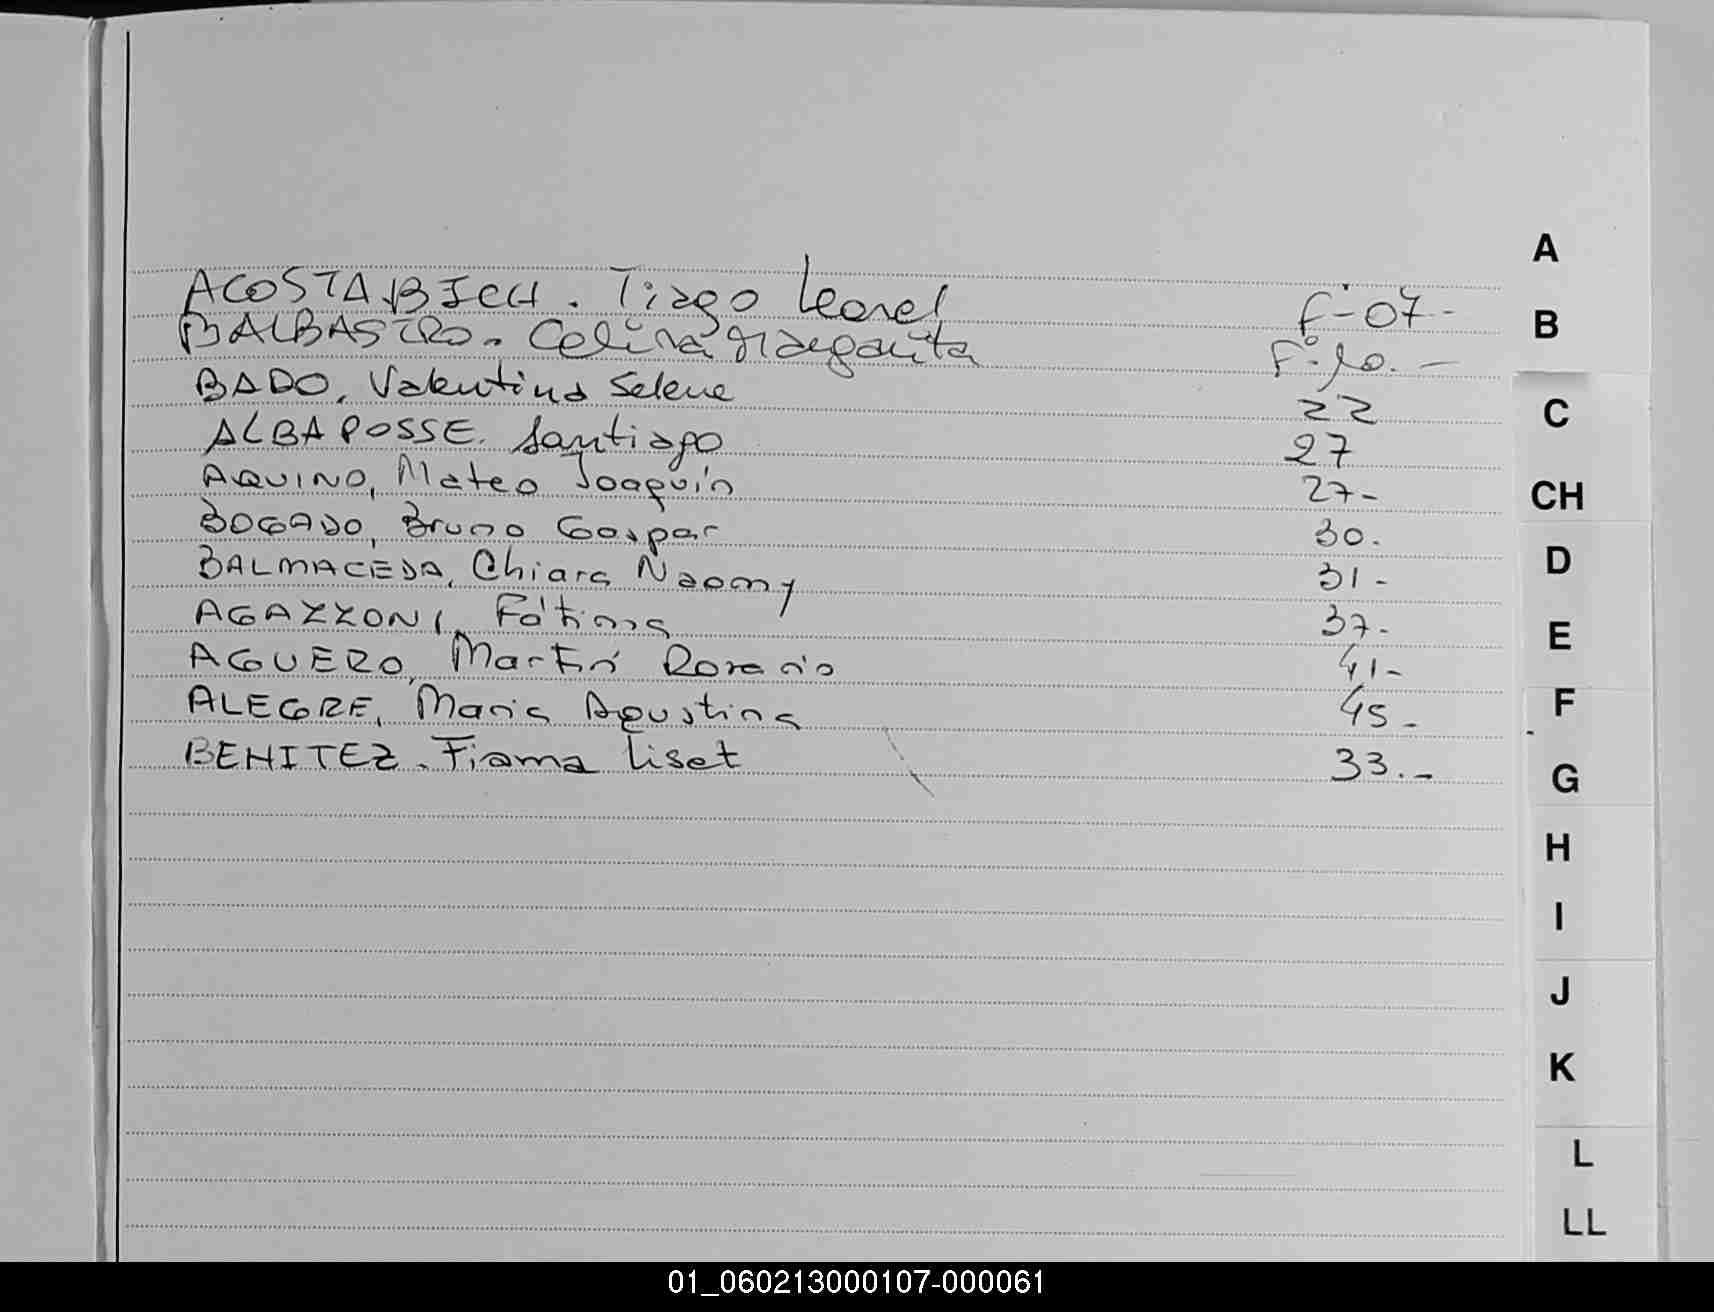 ACOSTA BICH. Tiago Leonel F° 07.-
BALBASTRO. Celina Margarita F° 10. -
BADO, Valentina Selene 22
ALBA POSSE. Santiago 27
AQUINO, Mateo Joaquín 27-
BOGADO, Bruno Gaspar 30.
BALMACEDA, Chiara Naomy 31-
AGAZZONI, Fátima 37-
AGUERO, Martín 41-
ALEGRE, Maria Agustina 45-
BENITEZ. Fiama Liset 33.-
A
B
C
CH
D
E
F
G
H
I
J
K
L
LL
01_060213000107-000061